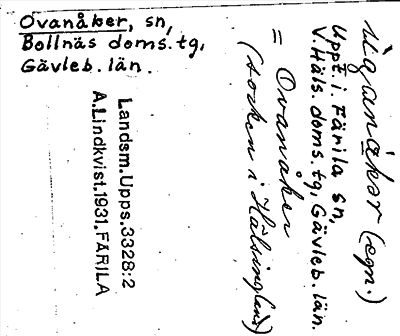 Ovanåker, sn,
Bollnäs doms.tg,
Gävleb. län.
(egn.)
Uppt. i Färila sn,
V. Häls. doms. tg, Gävleb. län.
= Ovanåker
(socken i Hälsingland)
Landsm. Upps. 3328:2
A. Lindkvist. 1931. FÄRILA